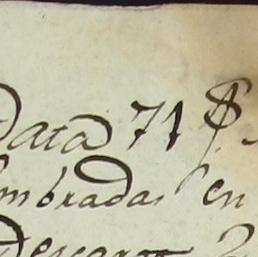 Data 71 $
mbradas en
Descargo